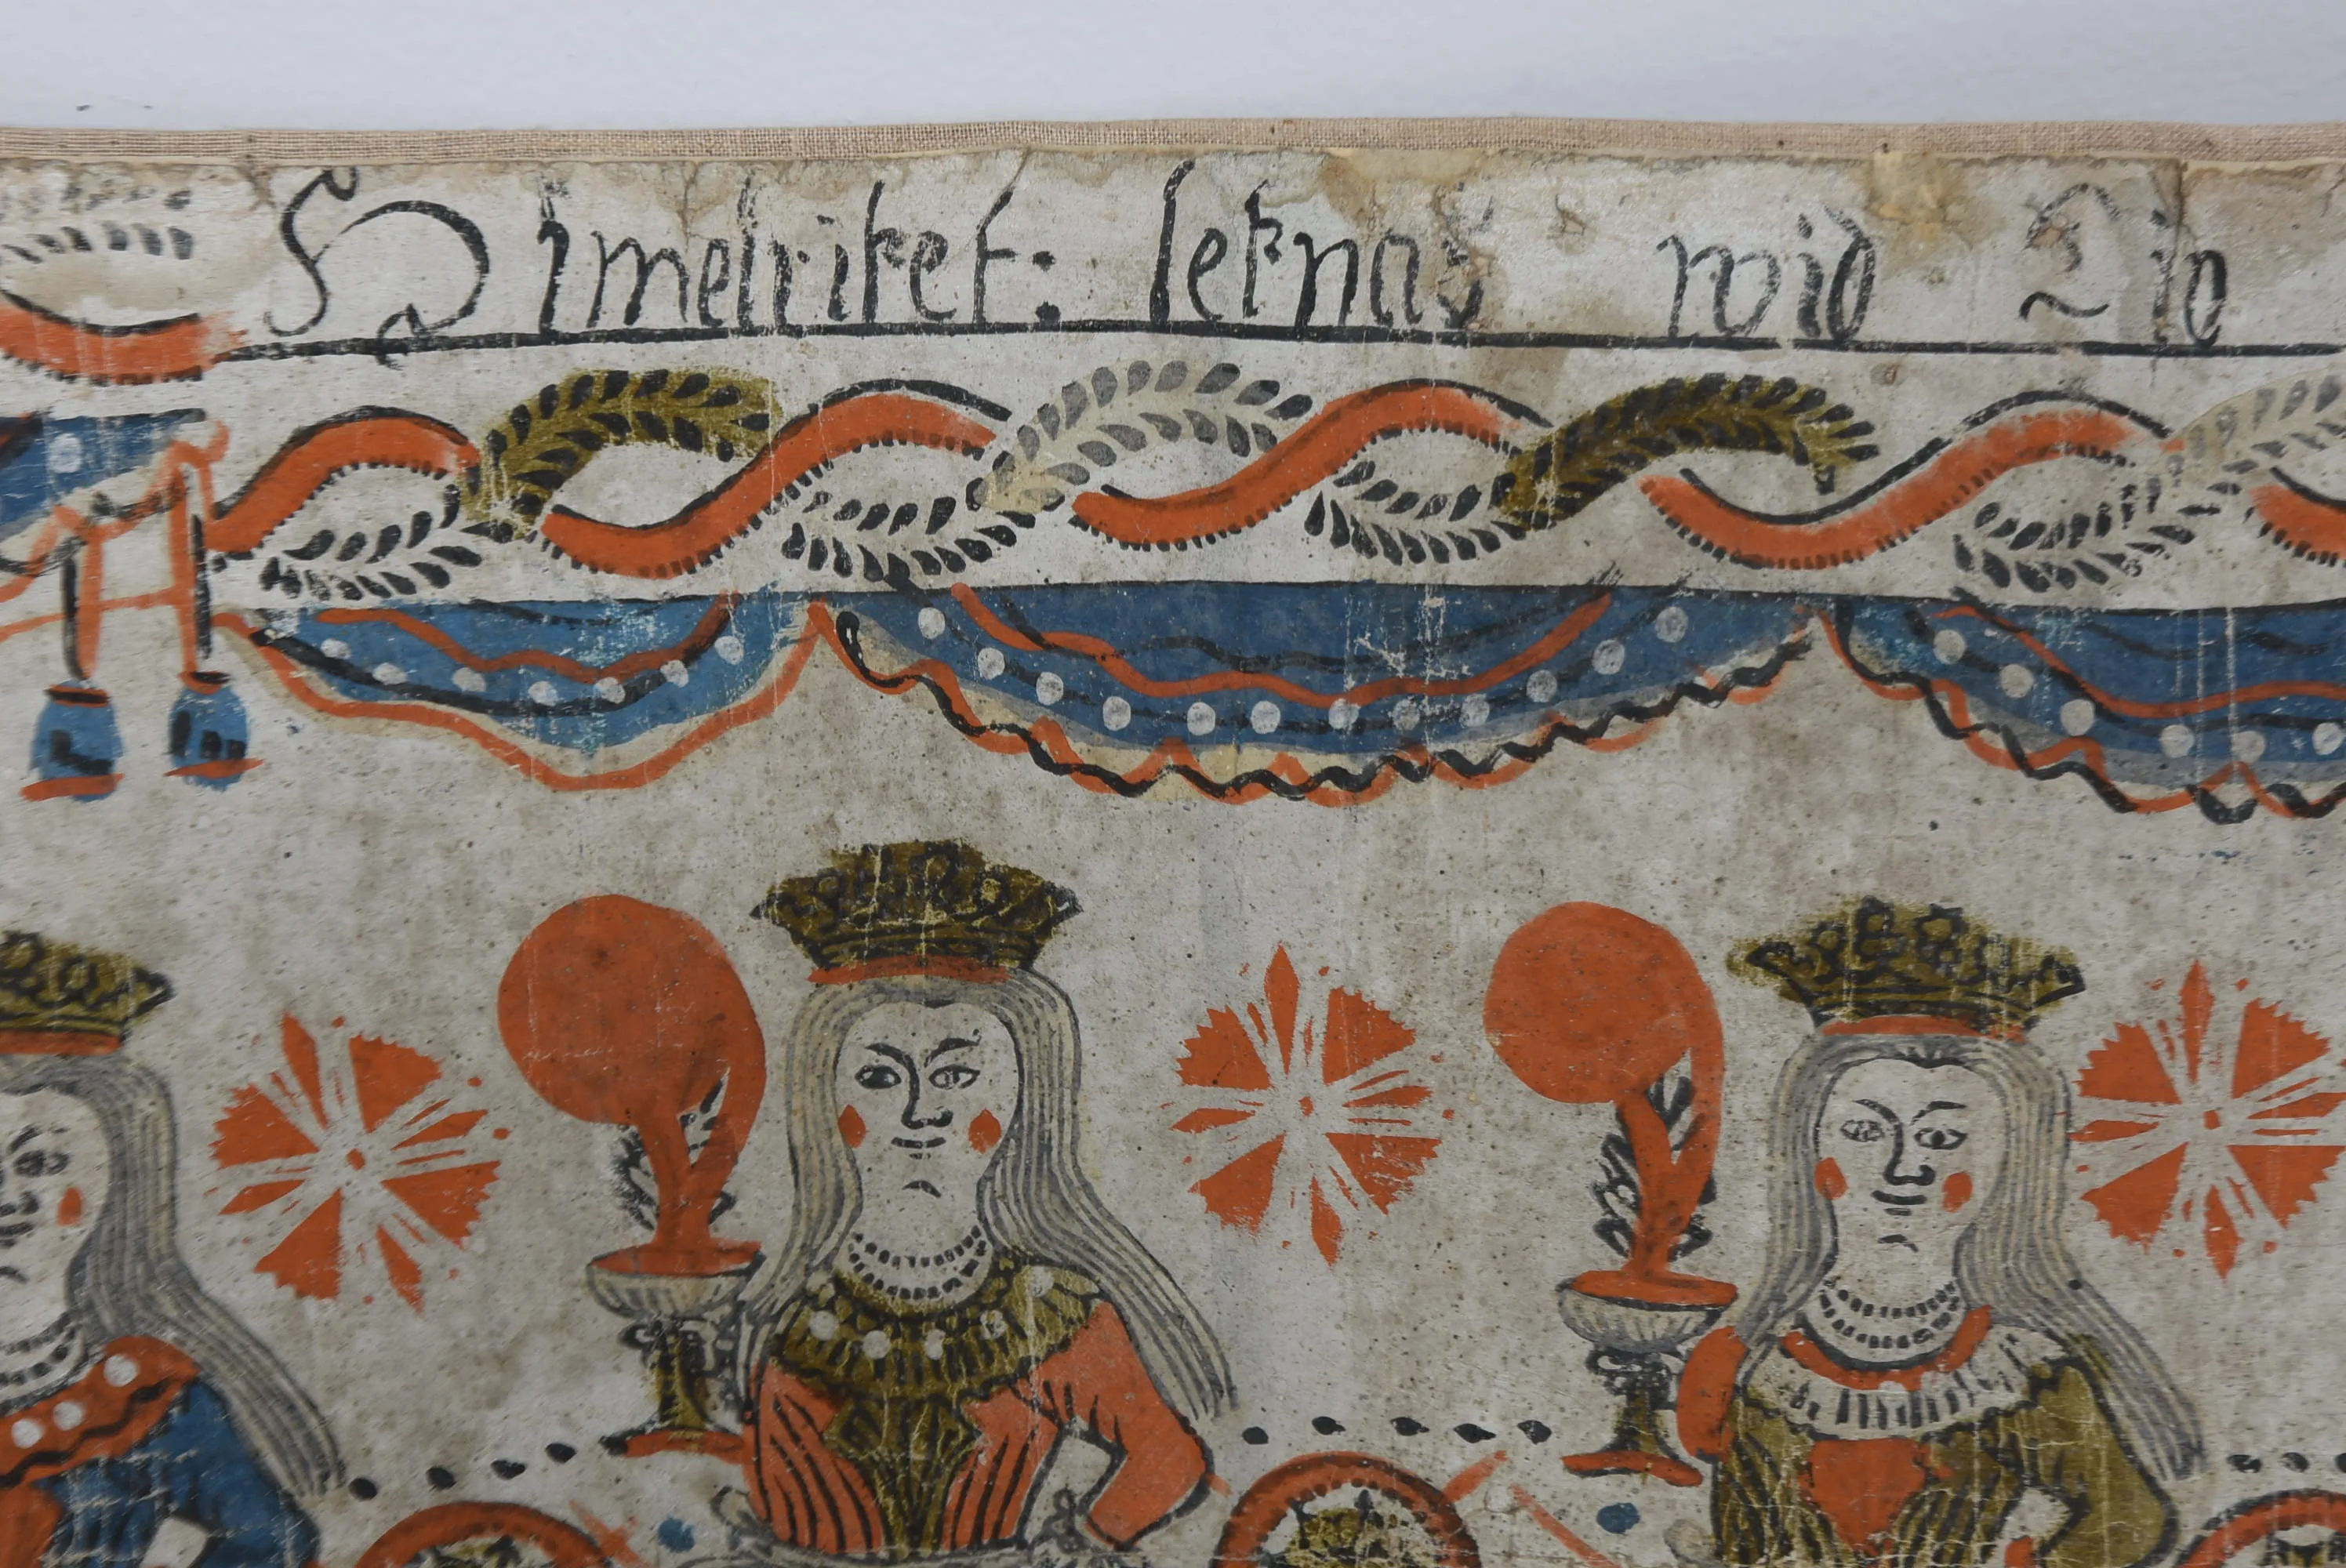 Himelriket: leknas wid Tio